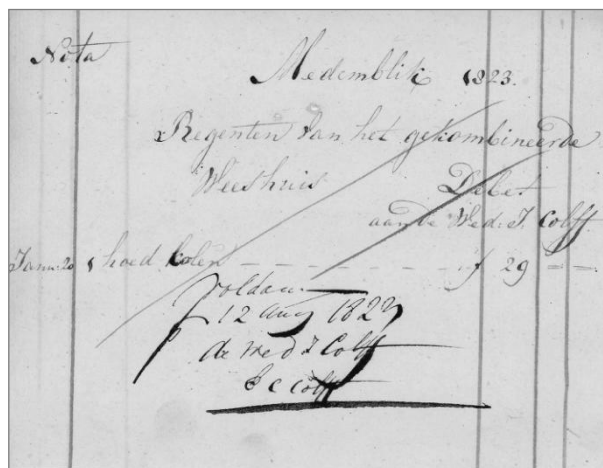 Nota
Medemblik 1823.
Regenten van het gekombineerde
Weeshuis Debet
aan de Wed: J. Colff
Janu: 20 1 hoed kolen f 29
Voldaan
12 Aug 1823
de Wed J Colff
C Colff